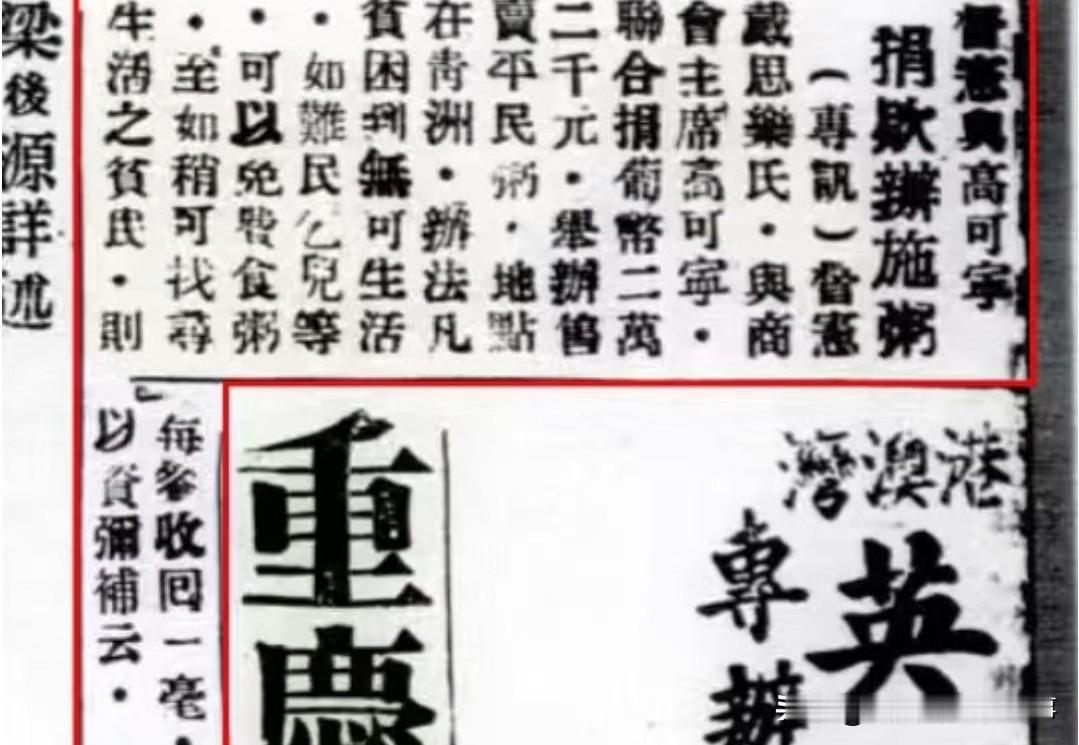 督憲與高可寧
捐欵辦施粥
（專訊）督憲
戴思樂氏·與商
會主席高可寧·
聯合捐葡幣二萬
二千元·舉辦售
賣平民粥·地點
在青洲·辦法凡
貧困到無可生活
·如難民乞兒等
·可以免費食粥
·至如稍可找尋
生活之貧民·則
每餐收回一毫·
以資彌補云·
梁後源詳述
港澳灣
英
專辦
重慶